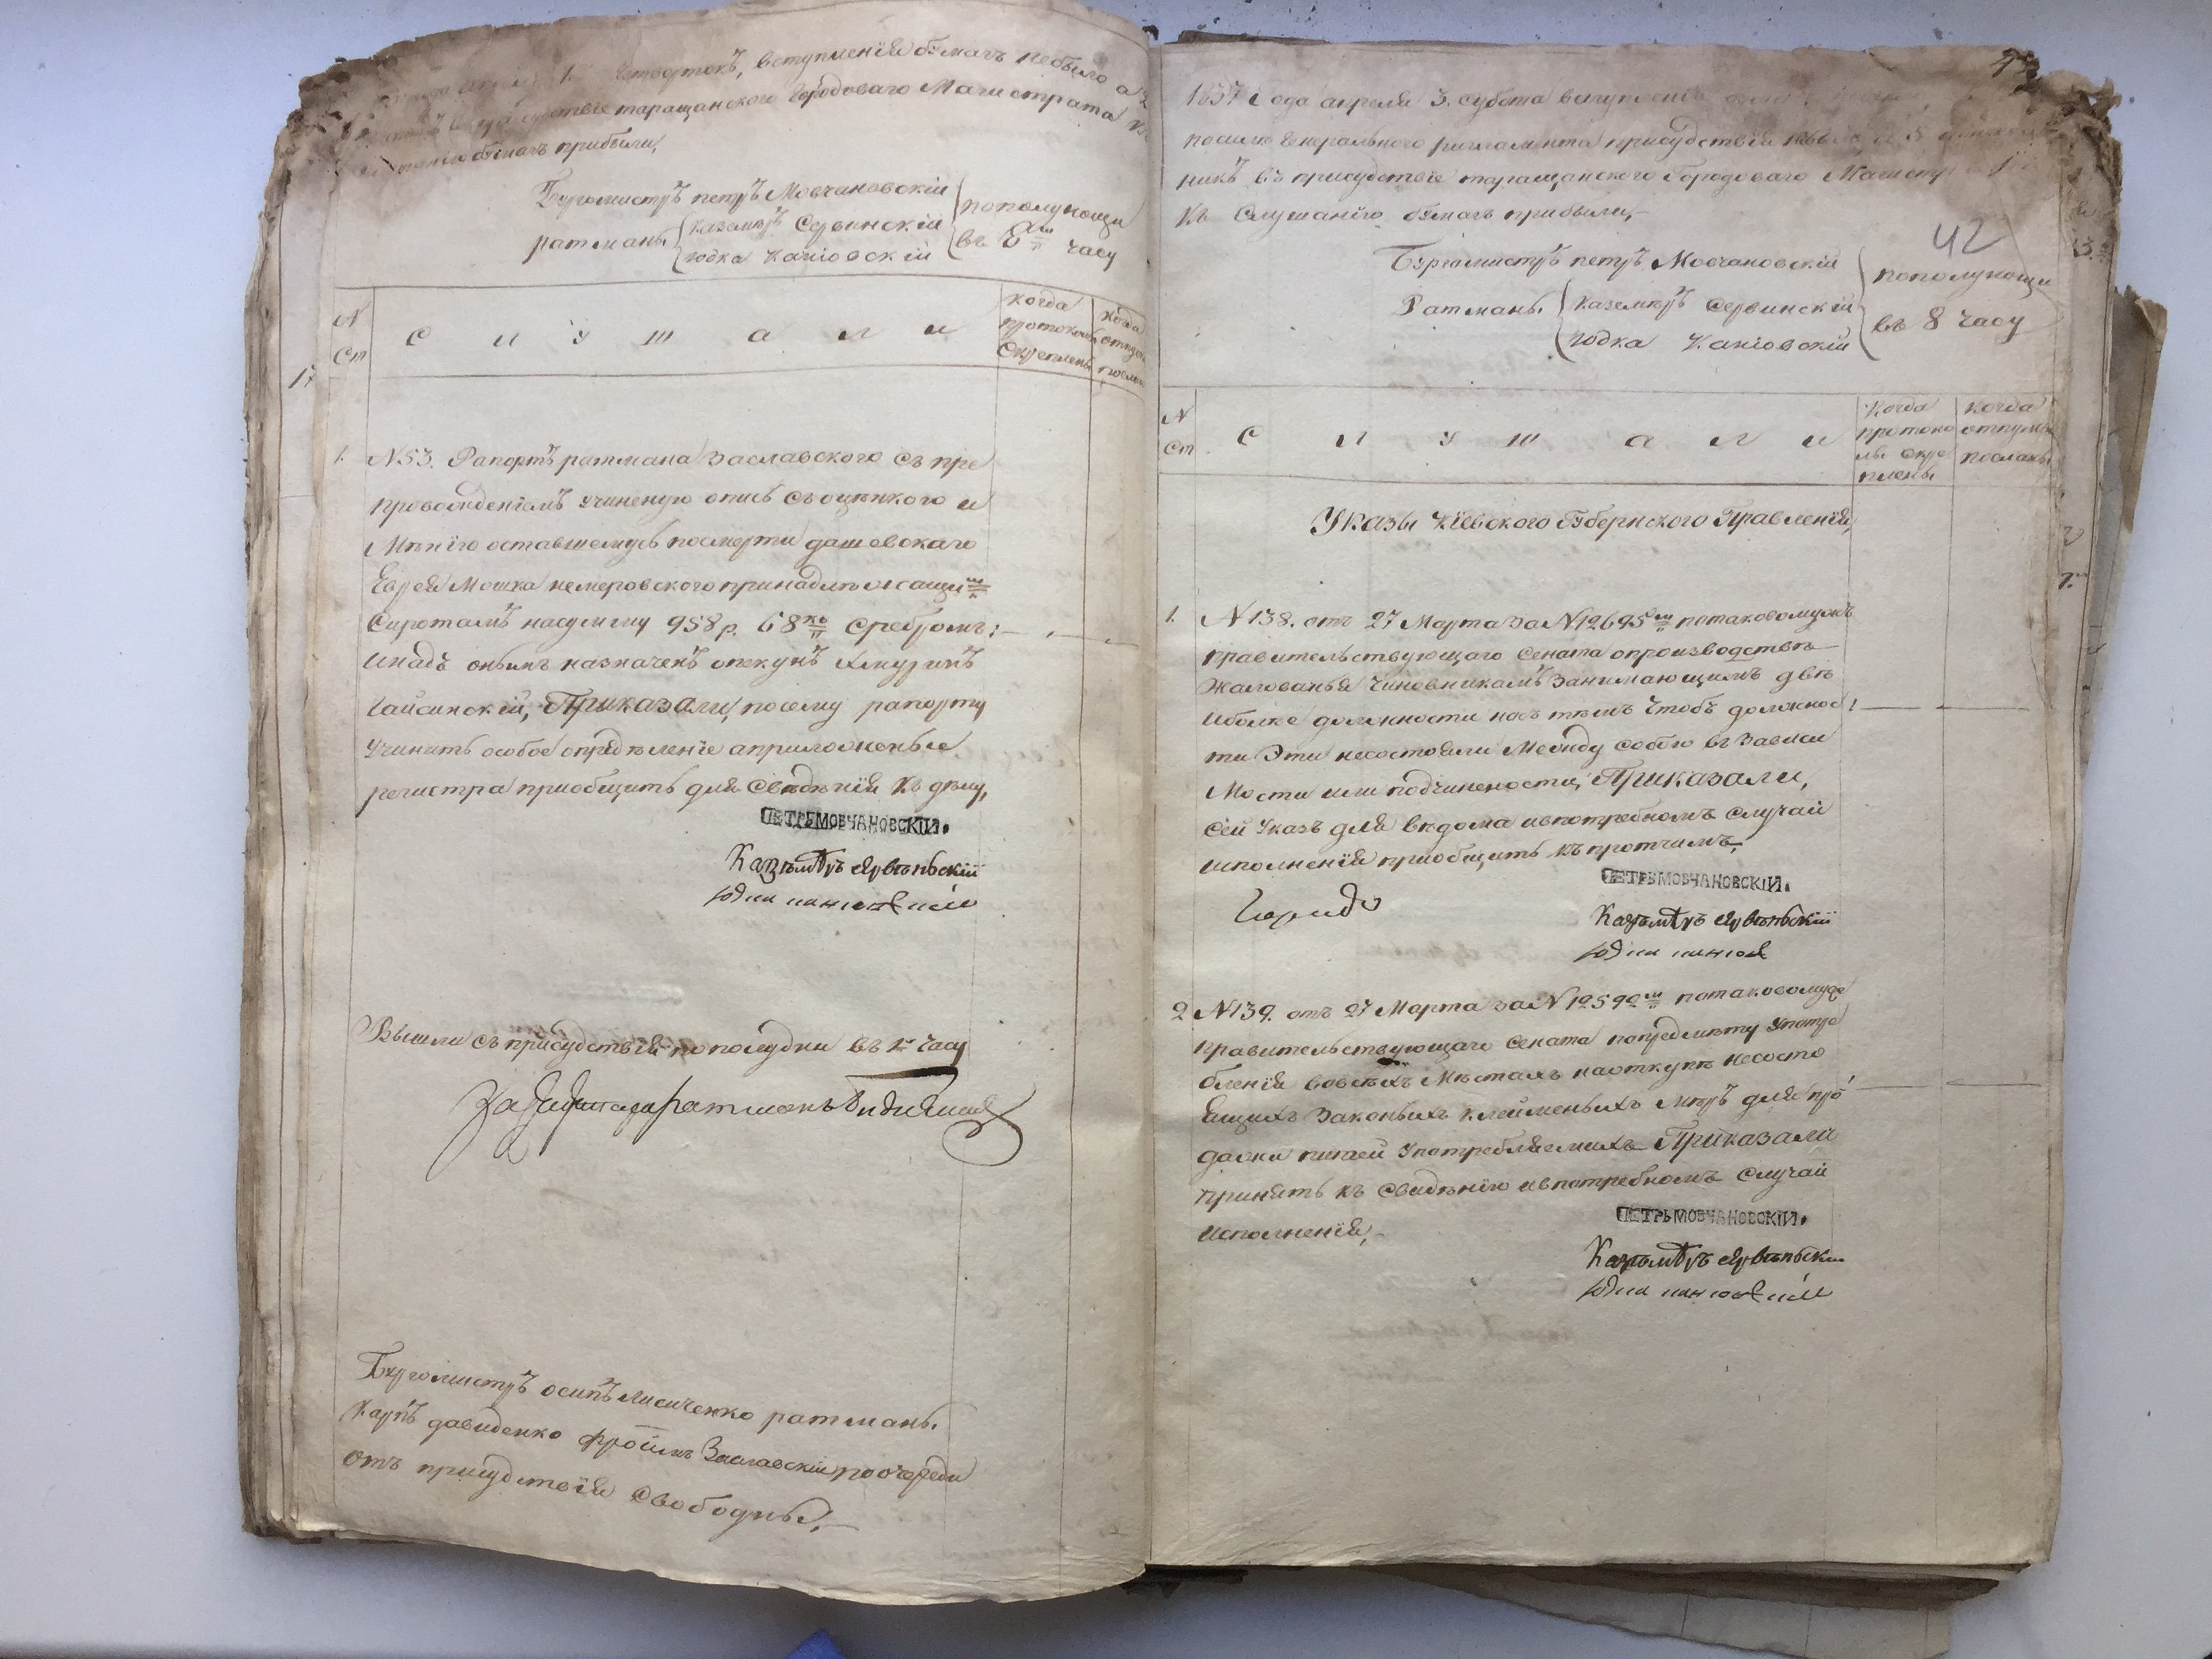 Четвертокъ, вступленія бумагъ небыло а 2
таращанского Городоваго Магистрата
бумагъ прибыли,
Бургомистръ петръ Мовчановскій
ратманы каземѣръ Сервинскій
юдка Каніовскій
пополуночи
въ 8ᵐ часу
N
Ст
С л у ш а л и
когда
протоколы
Скреплены
17
1. N 53. Рапортъ ратмана Заславского съ пре
провождѣніемъ учиненую опись съоценкого и
Мѣнію оставшемусь посмерти дашовскаго
Еврея Мошка немеровского принадлѣжащи
Сиротамъ насумму 958 р. 68 ко Сребромъ:
инадъ онымъ назначенъ опекунъ
Гайсинскій, Приказали, посему рапорту
учинить особое опредѣленіе априложеные
регистра пріобщить для Свѣдѣнія къ дѣлу,
ПЕТРЪ МОВЧАНОВСКІЙ.
Вышли съ присудствія пополудни въ 1 часу
Бургомистръ осипъ Лисиченко ратманы
Карпъ давиденко Заславскій поочереди
отъ присудствія Свободны,
1837 Года апреля 3. субота вступленія
посилѣ Генерального ригламента присудствія
никъ въ присудствіе таращанского Городоваго
Къ Слушанію бумагъ прибыли,
42
Бургомистръ петръ Мовчановскій
Ратманы Каземѣръ Сервинскій
юдка Каніовскій
пополуночи
въ 8 часу
N
Ст
С л у ш а л и
Когда
протоко
лы скре
плены
Когда
отпуски
посланы
Указы Кіевского Губернского Правленія,
1. N 138. отъ 27 Марта за N 12695 потаковомужъ
правительствующаго Сената опроизводствѣ
Жалованья Чиновникамъ Занимающимъ двѣ
иболѣе должности нось тѣмъ Чтобъ должнос
ти Эти несостояли Между Собою въ Зависи
Мости или подчинености, Приказали,
Сей Указъ для вѣдома ивпотребномъ Случаи
исполненія пріобщить къ протчимъ,
ПЕТРЪ МОВЧАНОВСКІЙ.
2 N 139. отъ 27 Марта за N 12590
правительствующаго Сената попредмѣту Употре
бленія вовсѣхъ Мѣстахъ наоткупѣ несосто
ящихъ Законыхъ клейменыхъ Мѣръ для про
дажи питей Употребляемыхъ Приказали
принять къ Свидѣнію ивпотребномъ Случаи
исполненія,
ПЕТРЪ МОВЧАНОВСКІЙ.